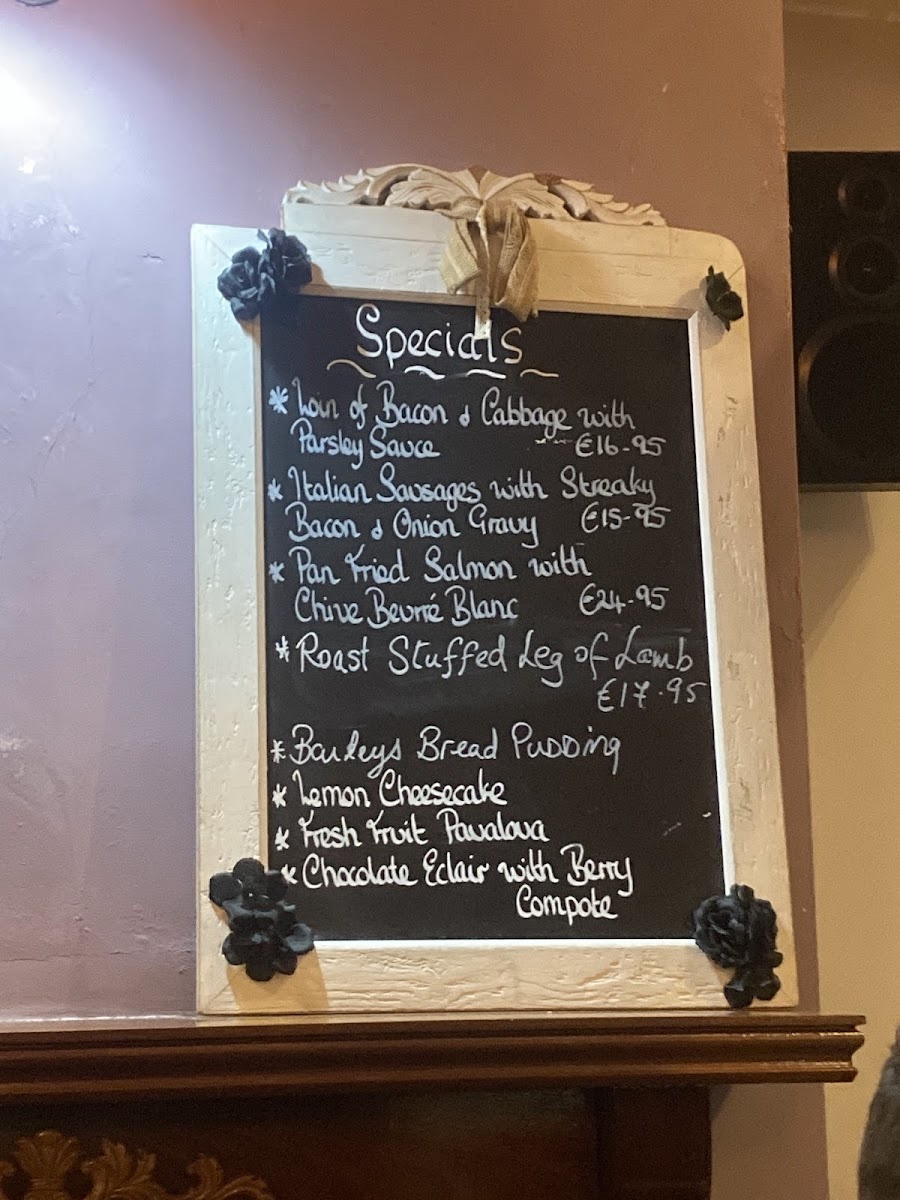 Specials
* Loin of Bacon & Cabbage with
Parsley Sauce €16-95
* Italian Sausages with Streaky
Bacon & Onion Gravy €15-95
* Pan Fried Salmon with
Chive Beurré Blanc €24-95
* Roast Stuffed Leg of Lamb
€17.95
* Baileys Bread Pudding
* Lemon Cheesecake
* Fresh Fruit Pavalova
* Chocolate Eclair with Berry
Compote